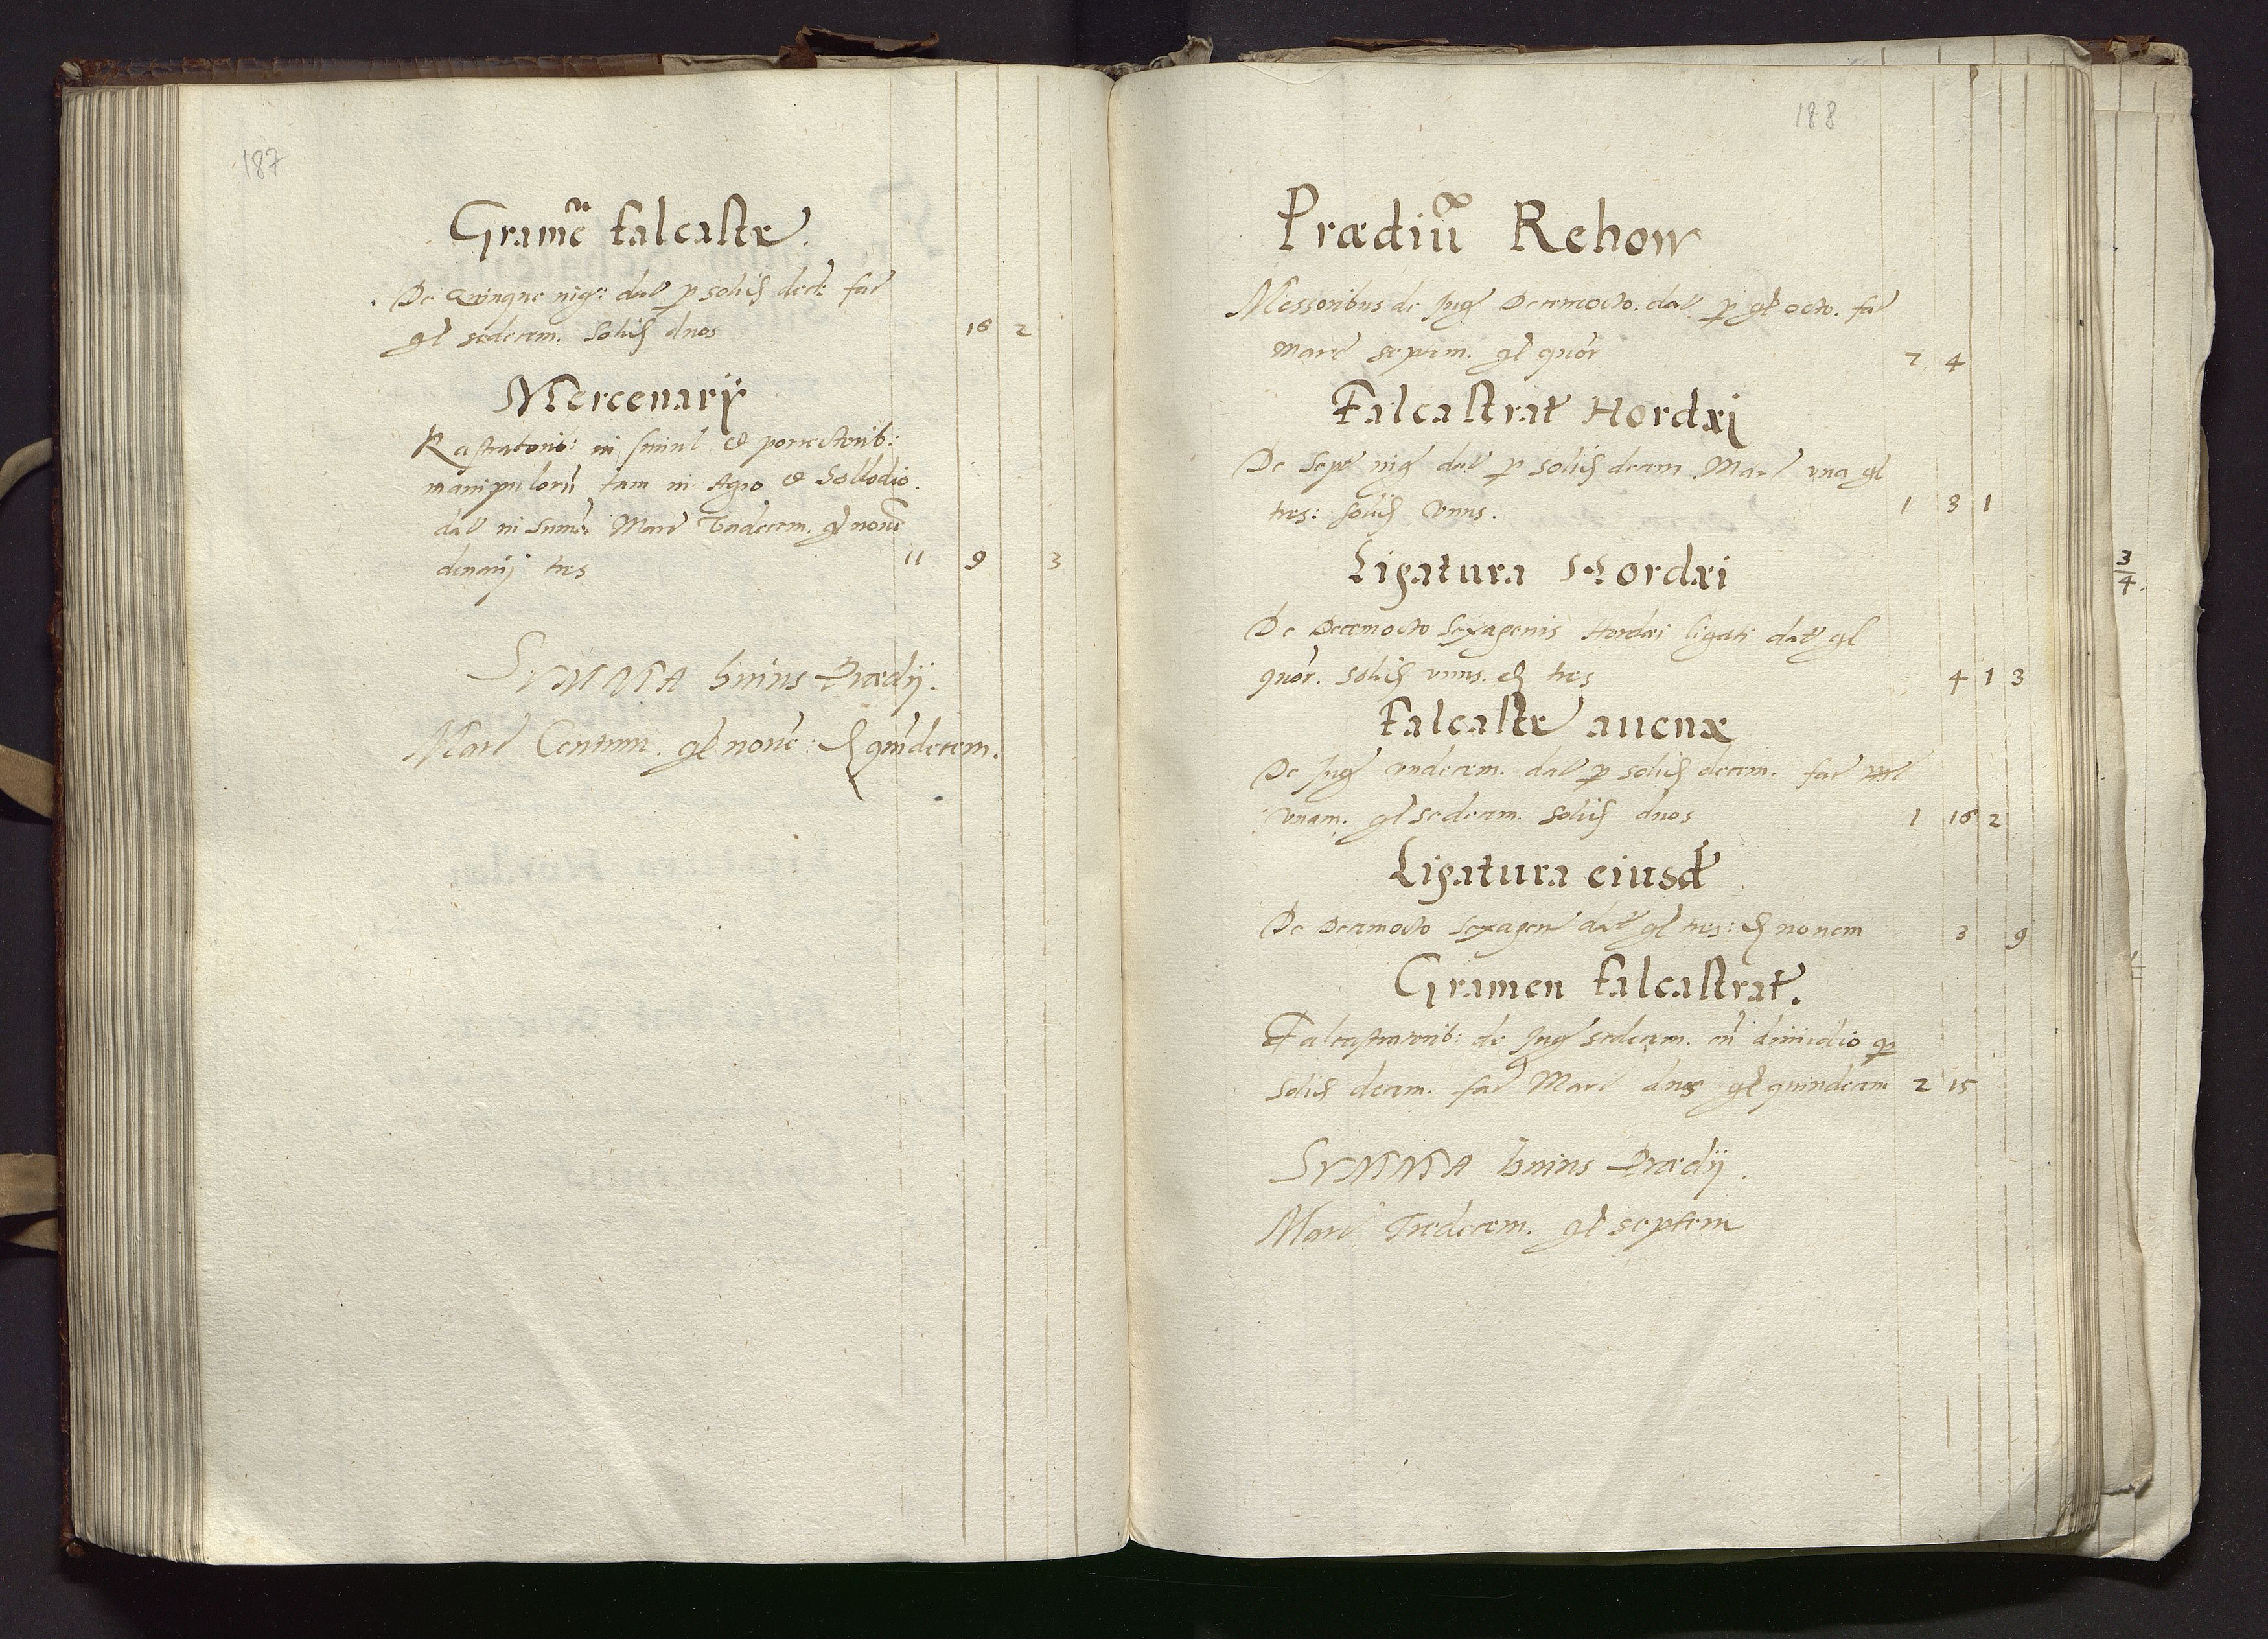 187
Gramē falcastr
De Quinque iug: dat p solid dece: fac
gl sedecim. solid duos 16 2
Mercenarij
Rastratorib: in simul et porrectorib:
manipulorū tam in Agro et Sollodio.
dat in Suma Marc Undecim. gl novē
denarij tres 11 9 3
SVMMA huius Prædij.
Marc Centum. gl novē: d quindecem.
188
Prædiū Rehow
Messoribus de Jug Decemocto. dat p gl octo. fac
Marc septem. gl quor 7 4
Falcastrat Hordæi
De Sept iug dat p solid decem. Marc una gl
tres: solid Unus. 1 3 1
Ligatura Hordæi
De Decemocto Sexagenis Hordæi ligati dat gl
quor. solid unus. d tres 4 1 3
Falcastr avenæ
De Jug undecem. dat p solid decem. fac
unam. gl sedecim. solid duos 1 16 2
Ligatura eiusd
De Decemocto Sexagen dat gl tres: d novem 3 9
Gramen falcastrat.
Falcastratorib: de Jug sedecim. cū dimidio p
solid decem. fac Marc duas gl quindecim 2 15
SVMMA huius Prædij.
Marc Tredecem. gl septem
3
4